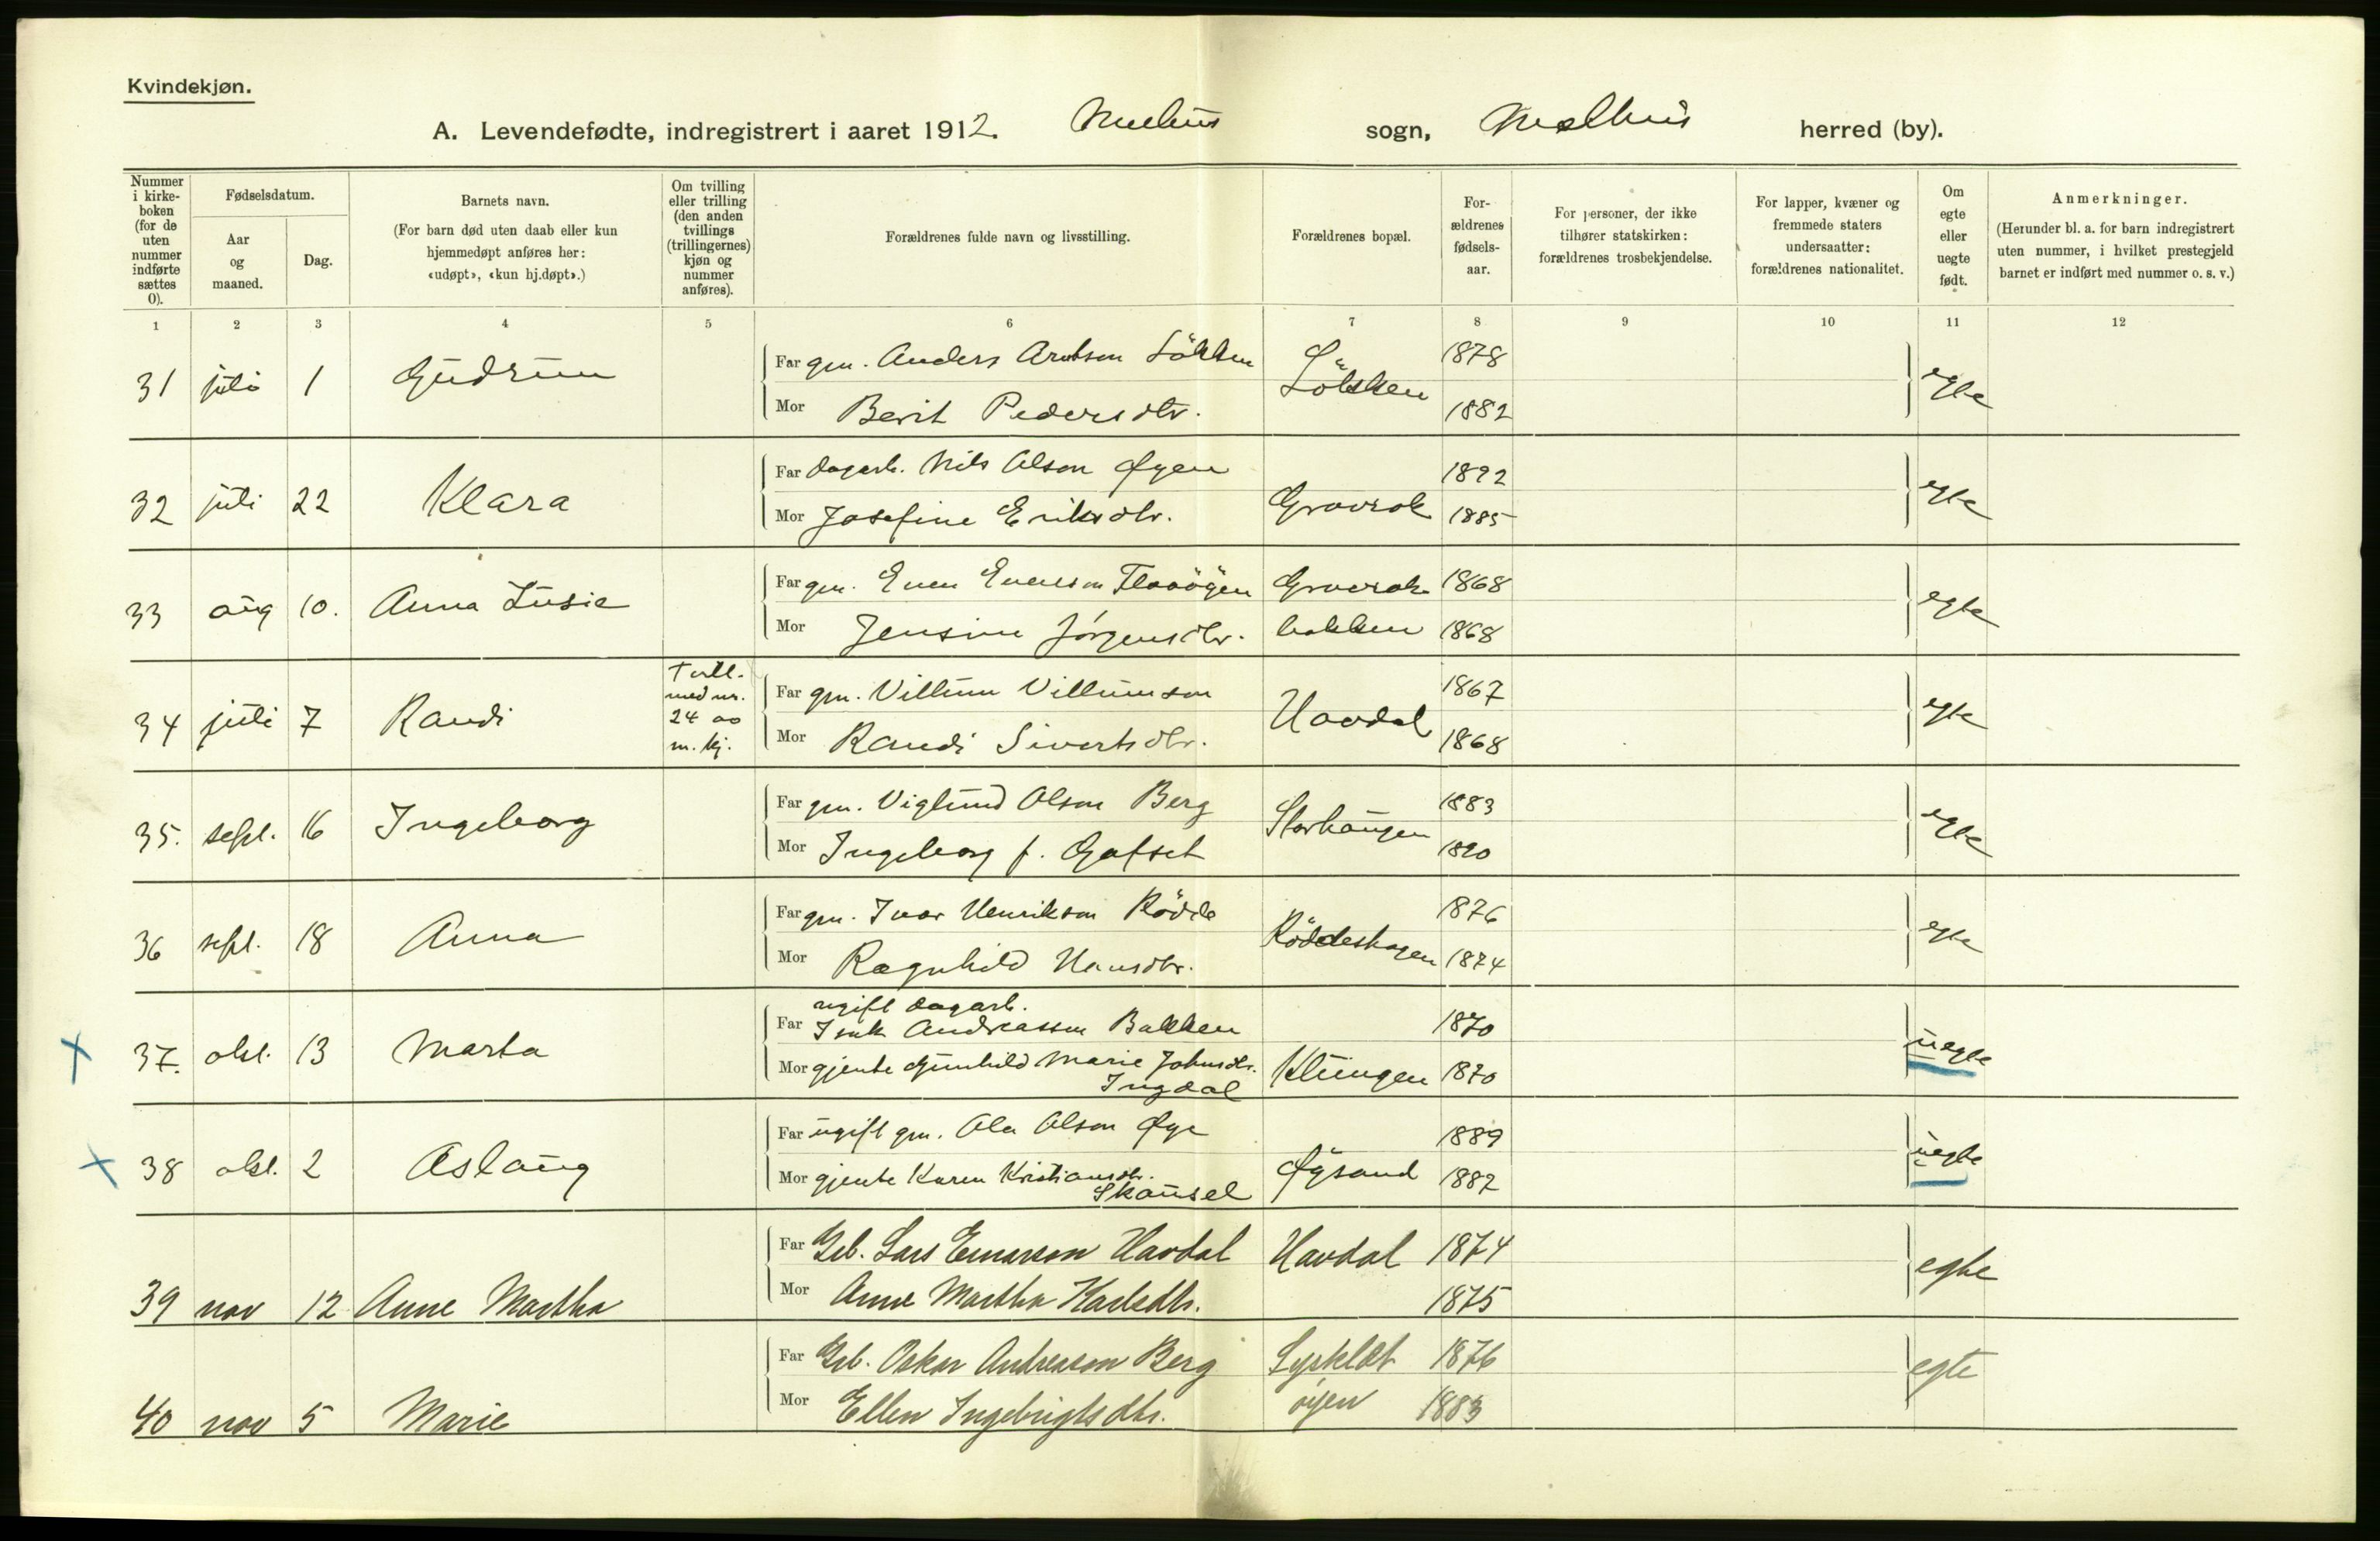 Kvindekjøn.
A. Levendefødte, indregistrert i aaret 1912. Melhus sogn, Melhus herred (by).
Nummer i kirke-boken (for de uten nummer indførte sættes 0).
Fødselsdatum.
Aar og maaned.
Dag.
Barnets navn.
(For barn død uten daab eller kun hjemmedøpt anføres her: «udøpt», «kun hj.døpt».)
Om tvilling eller trilling (den anden tvillings (trillingernes) kjøn og nummer anføres).
Forældrenes fulde navn og livsstilling.
Forældrenes bopæl.
For-ældrenes fødsels-aar.
For personer, der ikke tilhører statskirken: forældrenes trosbekjendelse.
For lapper, kvæner og fremmede staters undersaatter: forældrenes nationalitet.
Om egte eller uegte født.
Anmerkninger.
(Herunder bl. a. for barn indregistrert uten nummer, i hvilket prestegjeld barnet er indført med nummer o. s. v.)
1 2 3 4 5 6 7 8 9 10 11 12
31 juli 1 Gudrun Far gm. Anders Løkken 1878 egte
Mor Berit Pedersdtr. Løkken 1882
32 juli 22 Klara Far dagarb. Nils Olson Øyen 1892 egte
Mor Josefine Eriksdtr. Gravrok 1885
33 aug 10. Anna Lusie Far gm. Even Evenson Flaaöyen Gravrok 1868 egte
Mor Jensine Jørgensdtr. bakken 1868
34 juli 7 Randi Tvill. med nr. 24 av m. kj. Far gm. Villum Villumson 1867 egte
Mor Randi Sivertsdtr. Havdal 1868
35. sept. 16 Ingeborg Far gm. Viglund Olson Berg Storhaugen 1883 egte
Mor Ingeborg f. Gafset 1890
36 sept. 18 Anna Far gm. Ivar Henrikson Rödde 1876 egte
Mor Ragnhild Hansdtr. Röddeshagen 1874
37. okt. 13 Marta Far ugift dagarb. Isak Andreasson Bakken 1870 uegte
Mor gjente Gunhild Marie Johnsdtr. Ingdal Klungen 1870
38 okt. 2 Aslaug Far ugift gm. Ola Olson Øye 1889 uegte
Mor gjente Karen Kristiansdtr. Skausel Øysand 1882
39 nov 12 Anne Martha Far Gb. Lars Einarson Havdal Havdal 1874 egte
Mor Anne Martha Karlsdtr. 1875
40 nov 5 Marie Far Gb. Oskar Andreason Berg 1876 egte
Mor Ellen Ingebrigtsdtr. øyen 1883